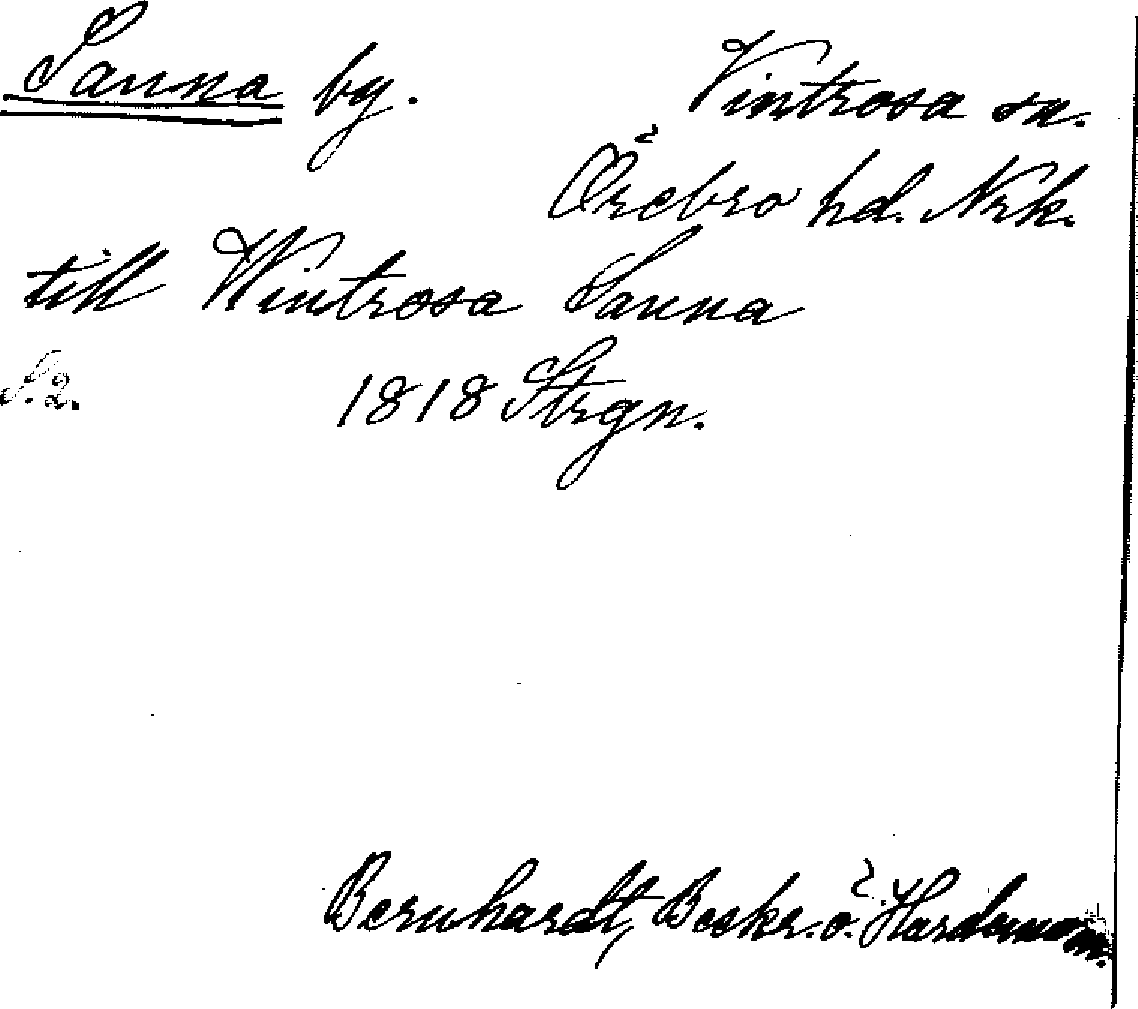 Sanna by. Vintrosa sn.
Örebro hd. Nrk.
till Wintrosa Sanna
S.2. 1818 Strgn.
Bernhardt, Beskr. ö.